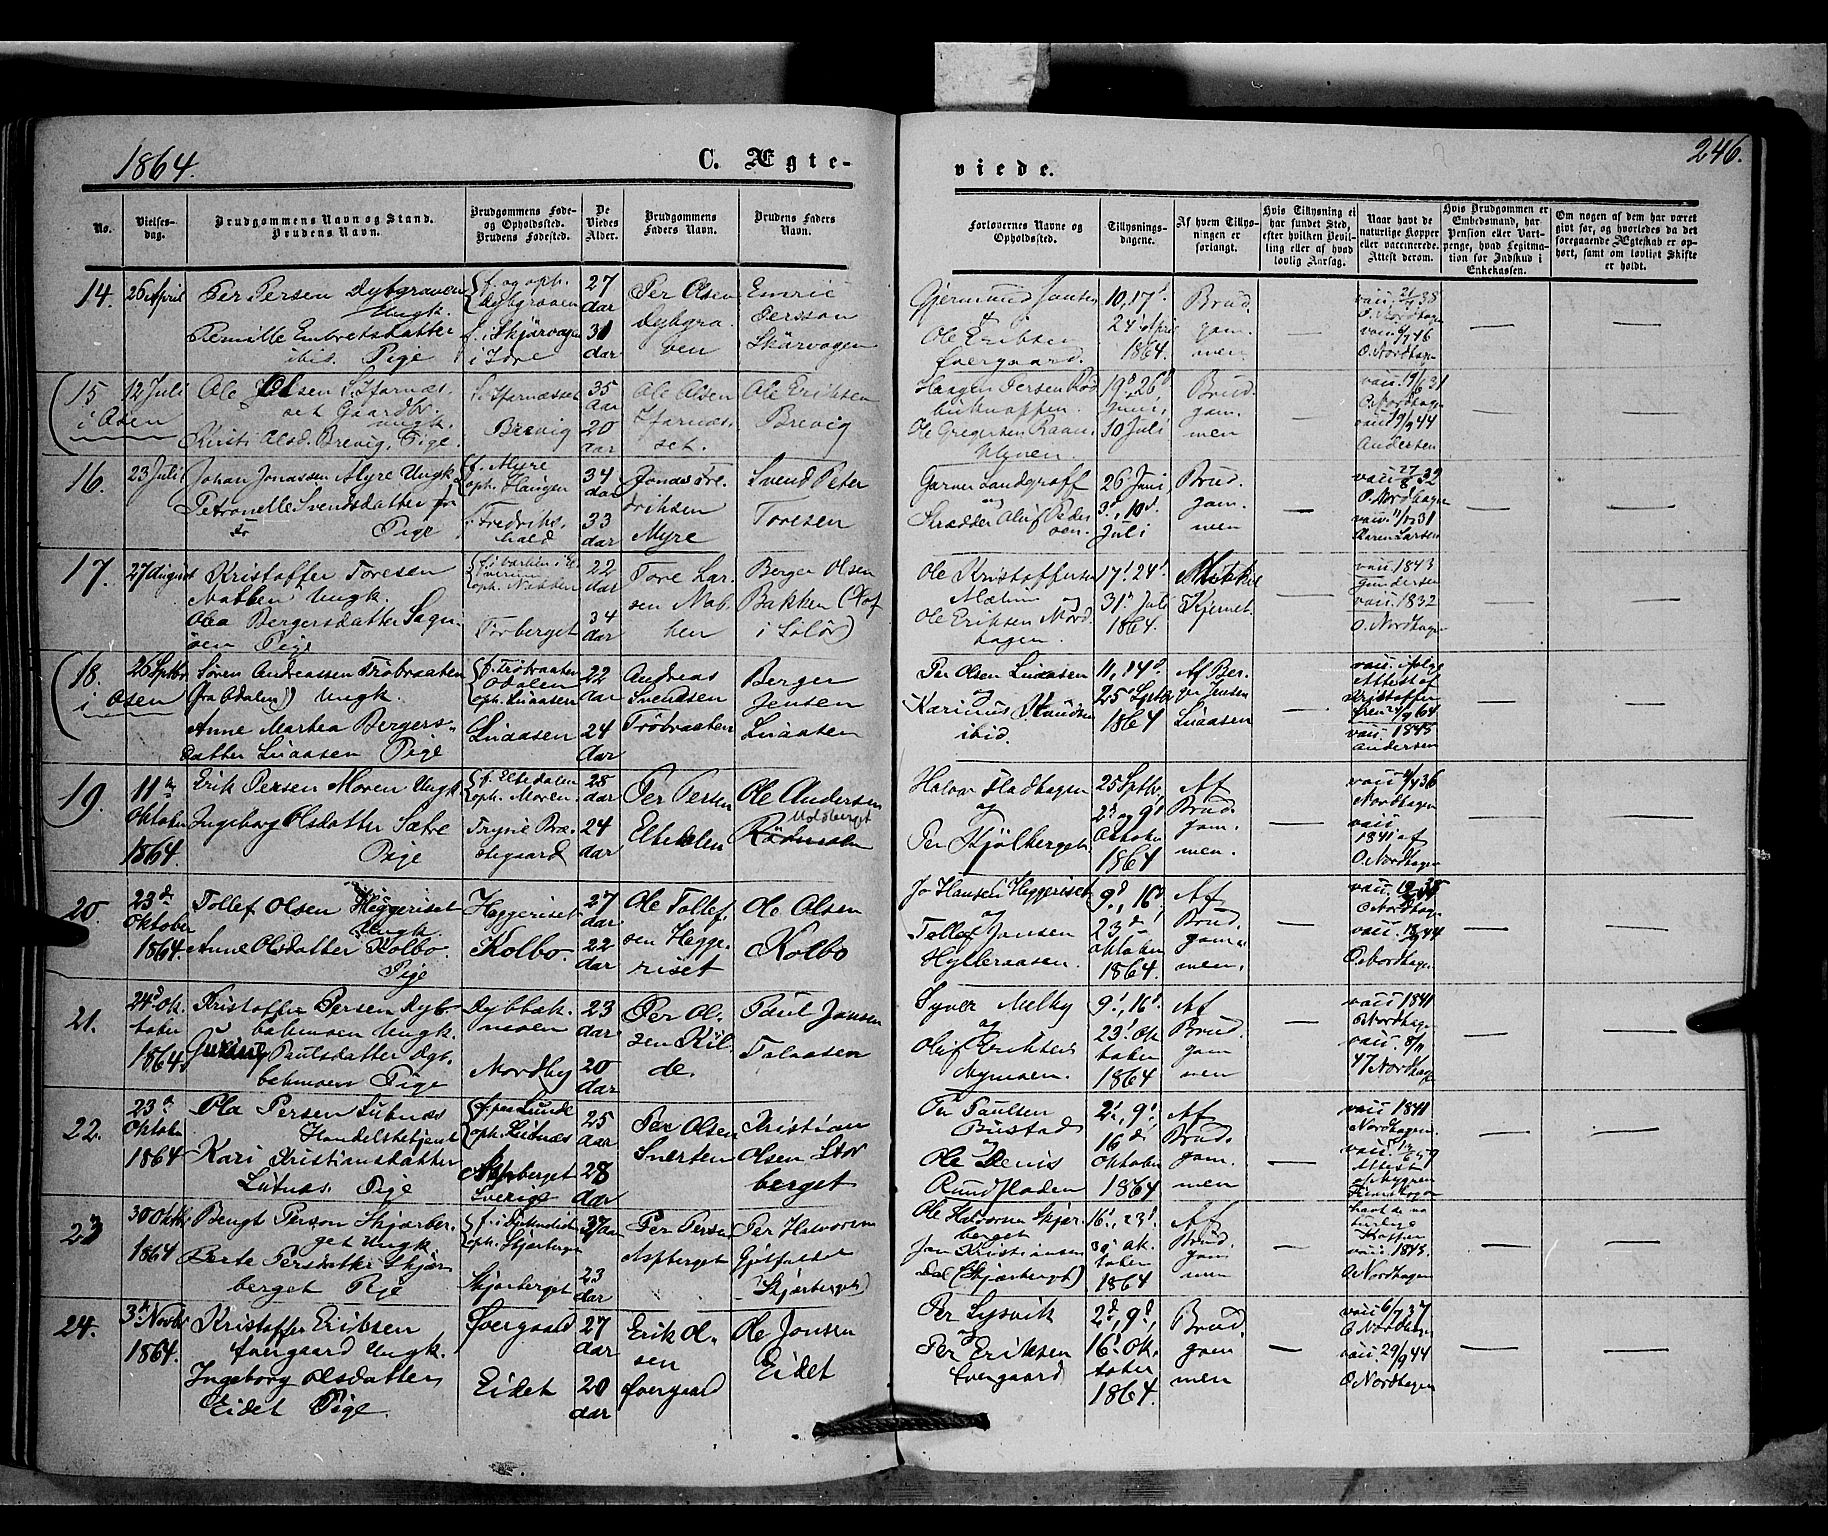 1864.
C. Ægte-
viede.
246.
No.
Vielses-
dag.
Brudgommens Navn og Stand.
Brudens Navn.
Brudgommens Føde-
og Opholdssted.
Brudens Fødested.
De
Viedes
Alder.
Brudgommens
Faders Navn.
Brudens Faders
Navn.
Forlovernes Navne og
Opholdssted.
Tillysnings-
dagene.
Af hvem Tillys-
ningen er
forlangt.
Hvis Tillysning ei
har fundet Sted,
efter hvilken Bevil-
ling eller af hvad
lovlig Aarsag.
Naar havt de
naturlige Kopper
eller vaccinerede.
Attest derom.
Hvis Brudgommen er
Embedsmand, har
Pension eller Vart-
penge, hvad Legitima-
tion for Indskud i
Enkekassen.
Om nogen af dem har været
gift før, og hvorledes da det
foregaaende Ægteskab er op-
hørt, samt om lovligt Skifte
er holdt.
14.
26 April
Per Persen Dybgraven
Ungk.
Pernille Embretsdatter
ibid. Pige
f. og oph.
Dybgraven
f. i Skjärvagen
i Idre
27
aar
31
aar
Per Olsen
Dybgra
ven
Emric
Persson
Skärvagen
Gjermund Jonsen
Ole Eriksen
Øvergaard.
10, 17
24 April
1864.
Brud
gom
men
O. Nordhagen
15
i Osen
12 Juli
Ole Olsen
set Gaardbr.
Ungk.
Kirsti Olsd. Brevig. Pige.
Brevig
35
aar
20
aar
Ole Olsen
set.
Ole Eriksen
Brevig
19de 26de
Juni,
10 Juli
Brud
gom
men
vacc 19/6 31
O. Nordhagen
vacc 19/9 44
Andersen
16.
23 Juli
Johan Jonassen Myre Ungk.
Petronelle Svendsdatter
Pige
f. Myre
oph. Haugen
f. Fredriks
hald
34
aar
33
aar
Jonas
driksen
Myre
Svend Peter
Toresen
Garver Landgraff
og
26 Juni,
3de, 10de
Juli
Brud
gom
men
O. Nordhagen
Larsen
17.
27 August
Kristoffer Toresen
Nabben Ungk.
Olea Bergersdatter Sagn
oen Pige
oph. Nabben
Torberget
22
aar
34
aar
Tore Lar
sen Nab
ben
Berger Olsen
Bakken (Hof
i Solør)
Ole Kristoffersen
Mælum og
Ole Eriksen Nord
hagen.
17, 24
31 Juli
1864.
Mikkel
Kjernet
vacc 1843
Gundersen
vacc 1832
O. Nordhagen
18.
i Osen
26 Septbr
Søren Andreassen Trøbraaten
(fra Odalen) Ungk.
Anne Marthea Bergers-
datter Liaasen Pige
f. Trøbraaten
Odalen
oph. Liaasen
Liaasen
22
aar
24
aar
Andreas
Svendsen
Trøbraaten
Berger
Jensen
Liaasen
Per Olsen Liaasen
og
Karinus Knudsen
ibid.
11, 14de
25 Septbr
1864
Af Ber
ger Jensen
Liaasen
vacc. ifølge
Attest af
Kristoffer
vacc 1845
Andersen
19.
11te
Oktober
1864.
Erik Persen Moren Ungk
Ingeborg Olsdatter Sætre
Pige
f. Eltedalen
oph. Moren
Trysil Præ
stegaard
28
aar
24
aar
Per Persen
Eltdalen
Ole Andersen
Halvor Fladhagen
og
Per Kjølberget
25 Septbr,
2de og 9de
Oktober
1864
Af
Brud
gom
men.
Nordhagen
vacc
1841 af
O. Nordhagen
20.
23de
Oktober
1864.
Tollef Olsen Heggeriset
Ungk.
Anne Olsdatter Kolbo.
Pige
Heggeriset
Kolbo.
27
aar
22
aar
Ole Tollef
sen Hegge
riset
Ole Olsen
Kolbo
Jo Hansen Heggeriset
og
Tollef Jonsen
Hylleraasen.
9de, 16de
23de
Oktober
1864.
Af
Brud
gom
men.
O. Nordhagen
O. Nordhagen
21.
24de Ok
tober
1864.
Kristoffer Persen Dyb-
bækmoen Ungk.
Paulsdatter Dyb
bækmoen Pige
Dybbæk
moen
Nordby
23
aar
20
aar
Per Ol
sen Kil
de.
Paul Jonsen
Talaasen
Syver Melby
og
Oluf Eriksen
Nymoen.
9, 16
23 Ok
tober
1864
Af
Brud
gom
men
vacc 1841
O. Nordhagen
vacc. 8/11
47 Nordhagen
22.
23de
Oktober
1864
Ola Persen Lutnæs
Handelsbetjent
Kari Kristiansdatter
Lutnæs Pige
oph. Lutnæs
Sverige
25
aar
28
aar
Per Olsen
Snerten
Kristian
Olsen Stor
berget
Per Paulsen
Bustad
og
Ole Denis
Rundfloden
2, 9,
16de
Oktober
1864
Af
Brud
gom
men
vacc 1841
Nordhagen
Attest
23
30 Oktbr
1864
Bengt Person Skjærber
get Ungk
Berte Persdatter Skjær
berget Pige
oph. Skjærberget
Skjærberget
37 aar
23
aar
Per Persen
Aspberget
Per Halvorsen
(Skjærberget)
Ole Halvorsen Skjær
berget
Jon Kristiansen
Dal (Skjærberget)
16, 23
30 Ok
tober
1864
Af
Brud
gom
men
havt de na
turlige
Kopper
vacc 1843.
O. Nordhagen
24.
3de Novbr
1864.
Kristoffer Eriksen
Øvergaard Ungk.
Ingeborg Olsdatter
Eidet Pige.
Øvergaard
Eidet
27
aar
20
aar
Erik Ol
sen
Øvergaard
Ole Jonsen
Eidet
Per Lysvik
og
Per Eriksen
Øvergaard
2de, 9de,
16 Ok
tober
1864.
Brud
gom
men
vacc 6/7 37
O. Nordhagen
vacc. 29/9 44
O. Nordhagen